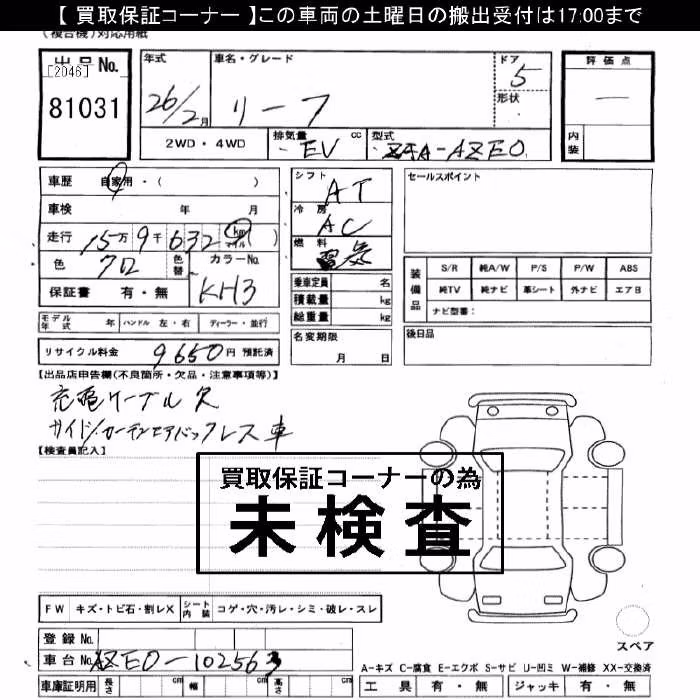 【 買取保証コーナー 】この車両の土曜日の搬出受付は17:00まで
(複合機)対応用紙
出品No.
[2046]
81031
年式
26/2月
車名・グレード
リーフ
ドア
5
形状
評価点
—
内装
2WD・4WD
排気量 EV cc
型式 ZAA-AZE0
車歴 自家用・( )
車検 年 月
走行 15万9千632 km マイル ( )
色 クロ
色替
カラーNo.
KH3
保証書 有・無
モデル年式 年 ハンドル 左・右 ディーラー・並行
リサイクル料金 9650円 預託済
シフト AT
冷房 AC
燃料 電気
乗車定員 名
積載量 kg
総重量 kg
名変期限
月 日
セールスポイント
装備品
S/R 純A/W P/S P/W ABS
純TV 純ナビ 革シート 外ナビ エアB
ナビ型番:
後日品
【出品店申告欄(不良箇所・欠品・注意事項等)】
充電ケーブル欠
サイド/カーテンエアバックレス車
【検査員記入】
買取保証コーナーの為
未検査
FW キズ・トビ石・割レX
シート内装 コゲ・穴・汚レ・シミ・破レ・スレ
登録No.
車台No. AZE0-102563
車庫証明用 長さ cm 幅 cm 高さ cm
スペア
A-キズ C-腐食 E-エクボ S-サビ U-凹ミ W-補修 XX-交換済
工具 有・無 ジャッキ 有・無